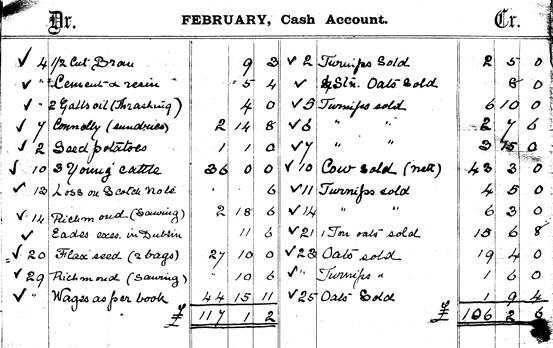 Dr. FEBRUARY, Cash Account. Cr.
✓ 4 1/2 Cwt. Bran 9 3 ✓ 2 Turnips Sold 2 5 0
✓ " Cement & resin 5 4 ✓ 4 Stn. Oats Sold 8 0
✓ " 2 Galls oil (Thrashing) 4 0 ✓ 5 Turnips sold 6 10 0
✓ 7 Connolly (sundries) 2 14 8 ✓ 6 " " 2 7 6
✓ 2 Seed potatoes 1 1 0 ✓ 7 " " 3 15 0
✓ 10 3 Young cattle 36 0 0 ✓ 10 Cow sold (nett) 43 3 0
✓ 13 Loss on Scotch note 6 ✓ 11 Turnips sold 4 5 0
✓ 14 Richmond (Sawing) 2 18 6 ✓ 14 " " 6 3 0
✓ Eades exes. in Dublin 11 6 ✓ 21 1 Ton oats sold 15 6 8
✓ 20 Flax seed (2 bags) 27 10 0 ✓ 23 Oats sold 19 4 0
✓ 29 Richmond (Sawing) " 10 6 ✓ " Turnips " 1 6 0
✓ " Wages as per book 44 15 11 ✓ 25 Oats Sold 1 9 4
£ 117 1 2 £ 106 2 6